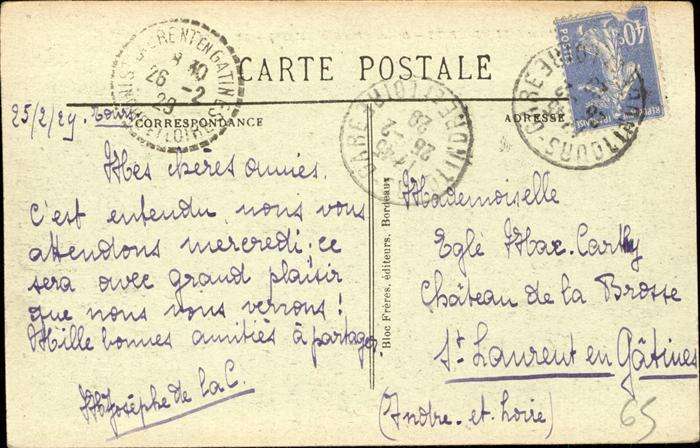 CARTE POSTALE
CORRESPONDANCE
ADRESSE
25/2/29. Tours
Mes chères amies.
C'est entendu, nous vous
attendons mercredi. ce
sera avec grand plaisir
que nous nous verrons!
Mille bonnes amitiés à partager
MJosèphe de la C.
Bloc Frères, éditeurs, Bordeaux
Mademoiselle
Eglé Mac-Carthy
Château de la Brosse
St Laurent en Gâtines
(Indre-et-Loire)
65
40c
POSTES
26 -2
29
INDRE-ET-LOIRE
TOURS-GARE